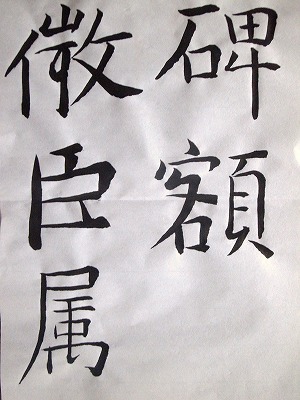 碑額
微臣属